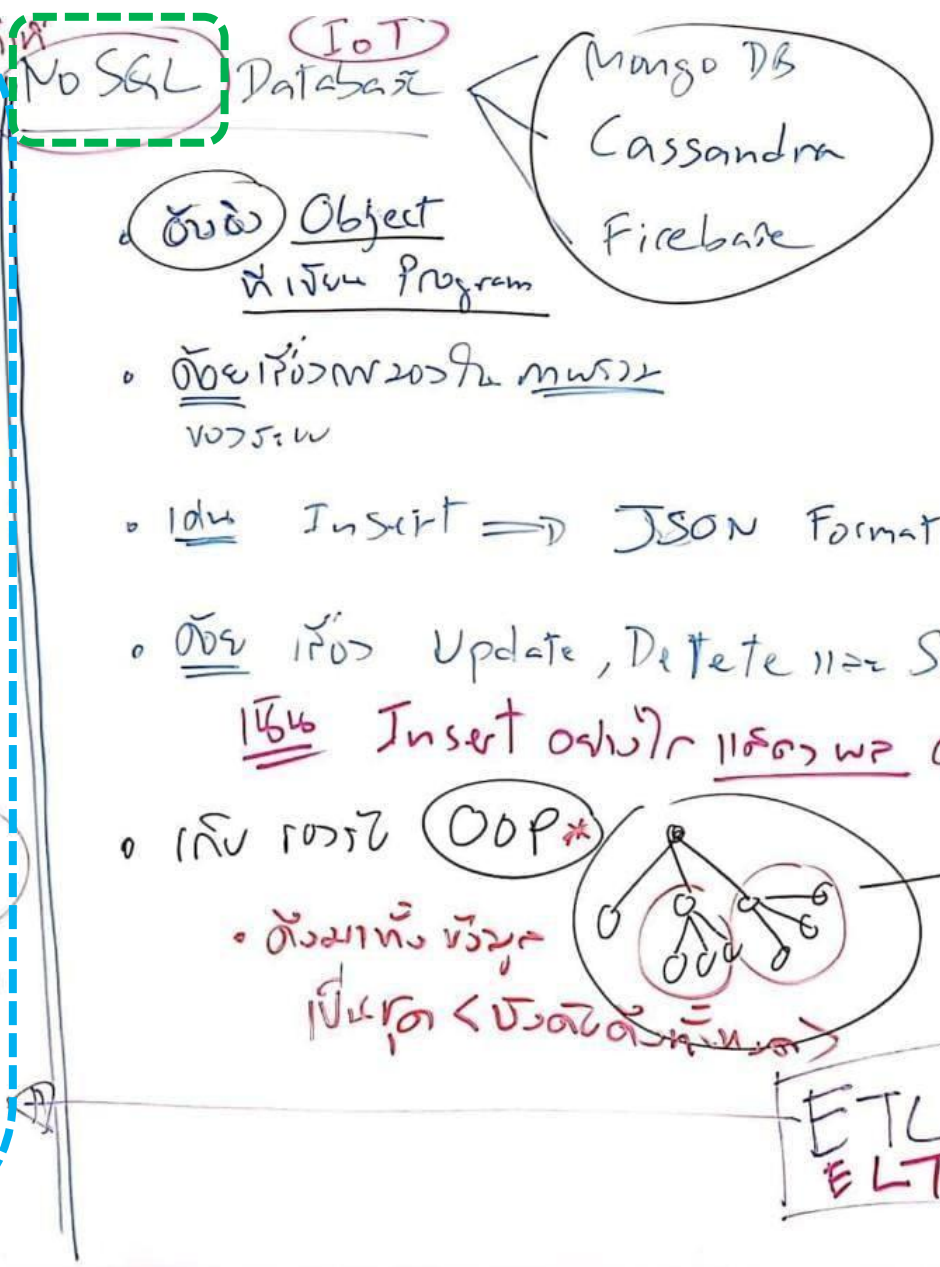 IoT
NoSQL Database
Mongo DB
Cassandra
Firebase
อิงถึง Object
ที่เขียน Program
ด้อยเรื่องการมองใน ภาพรวม
ของระบบ
เด่น Insert ⇒ JSON Format
ด้อย เรื่อง Update, Detete และ S
เน้น Insert อย่างไร แสดงผล
เก็บ รองรับ OOP*
ดึงมาทั้ง ข้อมูล
เป็นชุด <บังคับดึงทั้งหมด>
ETL
ELT